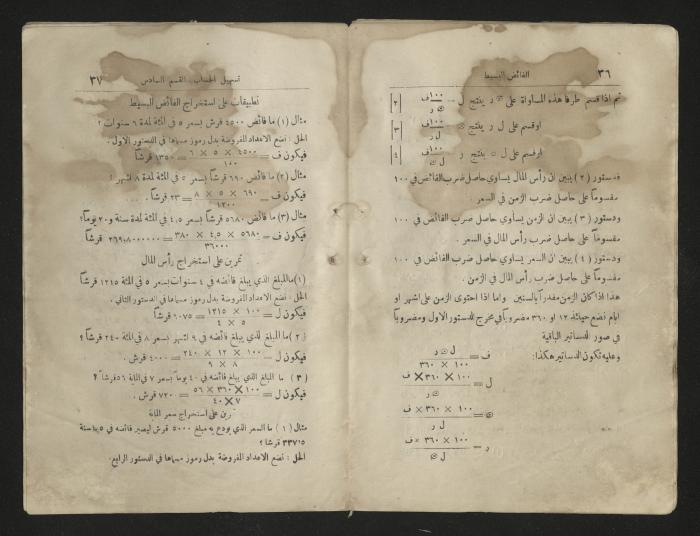 ٣٦ الفائض البسيط
ثم اذا قسم طرفا هذه المساواة على ⌀ ر ينتج ل = ١٠٠ف / ⌀ ر [٢]
او قسم على ل ر ينتج ⌀ = ١٠٠ف / ل ر [٣]
او قسم على ل ⌀ ينتج ر = ١٠٠ف / ل ⌀ [٤]
فدستور (٢) يبين ان رأس المال يساوي حاصل ضرب الفائض في ١٠٠
مقسوماً على حاصل ضرب الزمن في السعر .
ودستور (٣) يبين ان الزمن يساوي حاصل ضرب الفائض في ١٠٠
مقسوماً على حاصل ضرب رأس المال في السعر .
ودستور (٤) يبين ان السعر يساوي حاصل ضرب الفائض في ١٠٠
مقسوماً على حاصل ضرب رأس المال في الزمن .
هذا اذا كان الزمن مقدراً بالسنين واما اذا احتوى الزمن على اشهر او
ايام نضع حينئذ ١٢ او ٣٦٠ مضروباً في مخرج الدستور الاول ومضروباً
في صور الدساتير الباقية
وعليه تكون الدساتير هكذا :
ف = ل ⌀ ر / ١٠٠ × ٣٦٠
ل = ١٠٠ × ٣٦٠ × ف / ⌀ ر
⌀ = ١٠٠ × ٣٦٠ × ف / ل ر
ر = ١٠٠ × ٣٦٠ × ف / ل ⌀
تسهيل الحساب . القسم السادس ٣٧
تطبيقات على استخراج الفائض البسيط
مثال (١) ما فائض ٤٥٠٠ قرش بسعر ٥ في المئة لمدة ٦ سنوات ؟
الحل : نضع الاعداد المفروضة بدل رموز مسماها في الدستور الاول .
فيكون ف = ٤٥٠٠ × ٥ × ٦ / ١٠٠ = ١٣٥٠ قرشاً
مثال (٢) ما فائض ٦٩٠ قرشاً بسعر ٥ في المئة لمدة ٨ اشهر ؟
فيكون ف = ٦٩٠ × ٥ × ٨ / ١٢٠٠ = ٢٣ قرشاً .
مثال (٣) ما فائض ٥٦٨٠ قرشاً بسعر ٤،٥ في المئة لمدة سنة و٢٠ يوماً ؟
فيكون ف = ٥٦٨٠ × ٤،٥ × ٣٨٠ / ٣٦٠٠٠ = قرشاً
تمرين على استخراج رأس المال
(١) ما المبلغ الذي يبلغ فائضه في ٤ سنوات بسعر ٥ في المئة ١٢١٥ قرشاً
الحل : نضع الاعداد المفروضة بدل رموز مسماها في الدستور الثاني .
فيكون ل = ١٠٠ × ١٢١٥ / ٥ × ٤ = ٦٠٧٥ قرشاً
(٢) ما المبلغ الذي يبلغ فائضه في ٩ اشهر بسعر ٨ في المئة ٢٤٠ قرشاً ؟
فيكون ل = ١٠٠ × ١٢ × ٢٤٠ / ٩ × ٨ = ٤٠٠٠ قرش .
(٣) ما المبلغ الذي يبلغ فائضه في ٤٠ يوماً بسعر ٧ في المائة ٥٦ قرشاً ؟
فيكون ل = ١٠٠ × ٣٦٠ × ٥٦ / ٧ × ٤٠ = ٧٢٠٠ قرش .
تمرين على استخراج سعر المائة
مثال (١) ما السعر الذي يودع به مبلغ ٥٠٠٠ قرش ليصير فائضه في سنة
قرشاً ؟
الحل : نضع الاعداد المفروضة بدل رموز مسماها في الدستور الرابع .